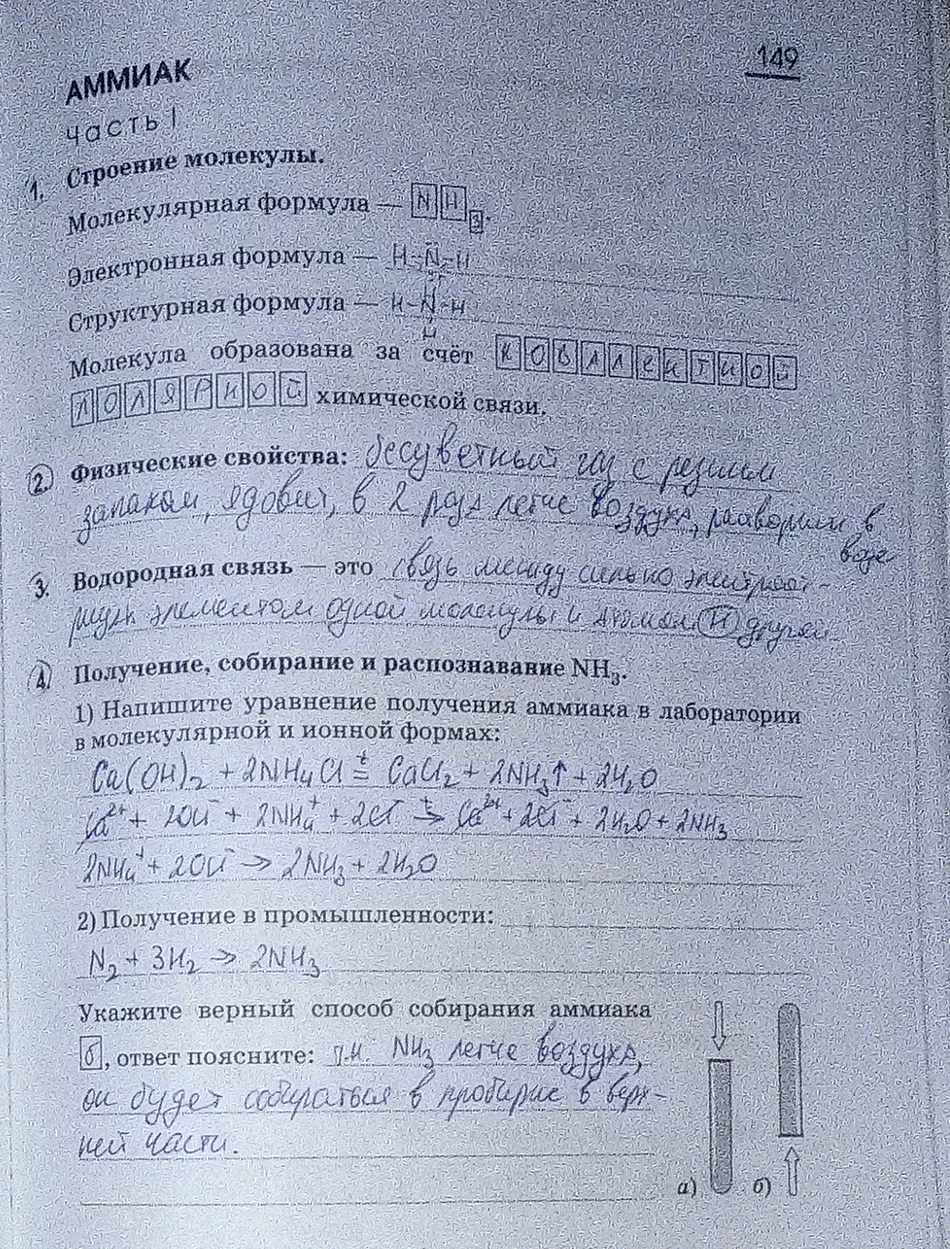 149
АММИАК
часть I
1. Строение молекулы.
Молекулярная формула — NH3.
Электронная формула — H–N̈–H
Структурная формула — H–N–H
H
Молекула образована за счёт КОВАЛЕНТНОЙ
ПОЛЯРНОЙ химической связи.
2. Физические свойства: бесцветный газ с резким
запахом, ядовит, в 2 раза легче воздуха, растворим в
воде
3. Водородная связь — это связь между сильно электроот-
элементом одной молекулы и атомом H другой.
4. Получение, собирание и распознавание NH3.
1) Напишите уравнение получения аммиака в лаборатории
в молекулярной и ионной формах:
Ca(OH)2 + 2NH4Cl t= CaCl2 + 2NH3↑ + 2H2O
Ca²⁺ + 2OH⁻ + 2NH4⁺ + 2Cl⁻ t→ Ca²⁺ + 2Cl⁻ + 2H2O + 2NH3
2NH4⁺ + 2OH⁻ → 2NH3 + 2H2O
2) Получение в промышленности:
N2 + 3H2 → 2NH3
Укажите верный способ собирания аммиака
б, ответ поясните: т.к. NH3 легче воздуха,
он будет собираться в пробирке в верх-
ней части.
а) б)